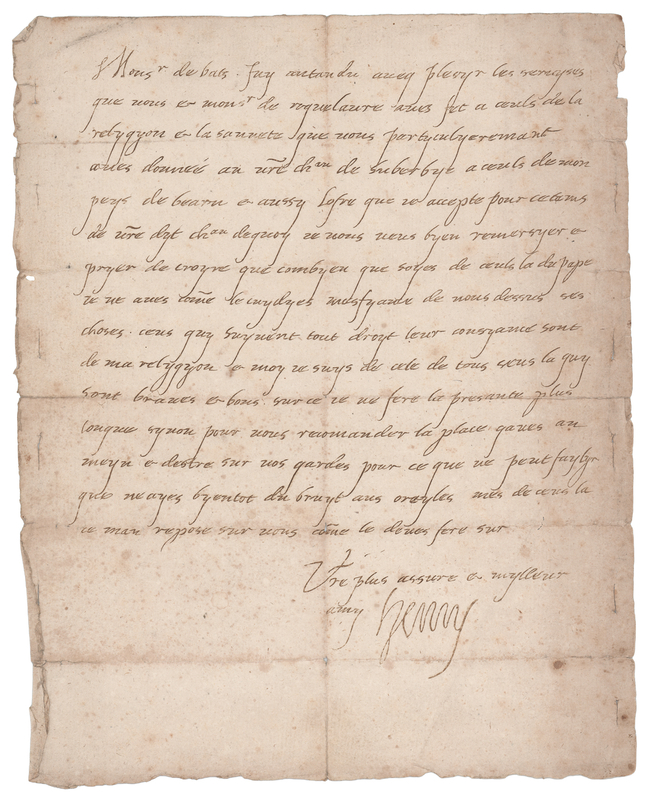 Monsr de bats . jay antandu aveq plesyr les servyses
que vous & monsr de roquelaure aves fet a ceuls de la
relygyon & la sauveté que vous partyculyeremant
aves donneé an vre chau de suberbye a ceuls de mon
peys de bearn & aussy lofre que je accepte pour ce tams
de vre dyt chau de quoy je vous veus byen remersyer &
pryer de croyre que combyen que soyes de ceus la du pape
je ne aves come le cuydyes mesfyance de vous dessus ses
choses . ceus quy suyvent tout droyt leur consyance sont
de ma relygyon & moy je suys de cele de tous ceus la quy
sont braves & bons . sur ce je ne fere la presante plus
longue synon pour vous recomander la place qaves an
meyn & destre sur vos gardes pour ce que ne peut faylyr
que ne ayes byentot du bruyt aus oreyles mes de ceus la
je man repose sur vous come le deves fere sur
Vre plus assure & mylleur
amy Henry